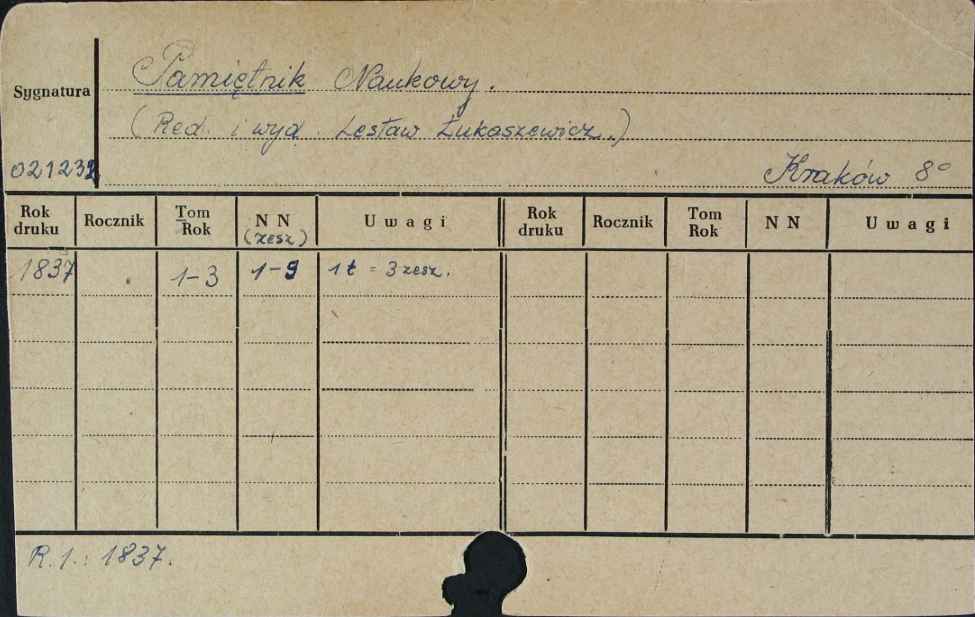 Pamiętnik Naukowy.
Sygnatura
(Red. i wyd. Lesław Łukaszewicz.)
021232
Kraków 8°
Rok druku Rocznik Tom Rok N N (zesz) Uwagi Rok druku Rocznik Tom Rok N N Uwagi
1837 1-3 1-9 1 t = 3 zesz.
R.1.: 1837.